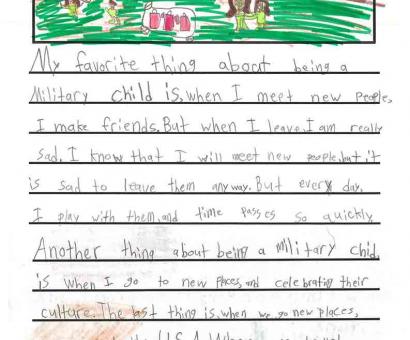 My favorite thing about being a
Military child is, when I meet new people,
I make friends. But when I leave, I am really
sad. I know that I will meet new people, but it
is sad to leave them anyway. But every day,
I play with them, and time passes so quickly.
Another thing about being a military chid,
is when I go to new places, and celebrating their
culture. The last thing is, when we go new places,